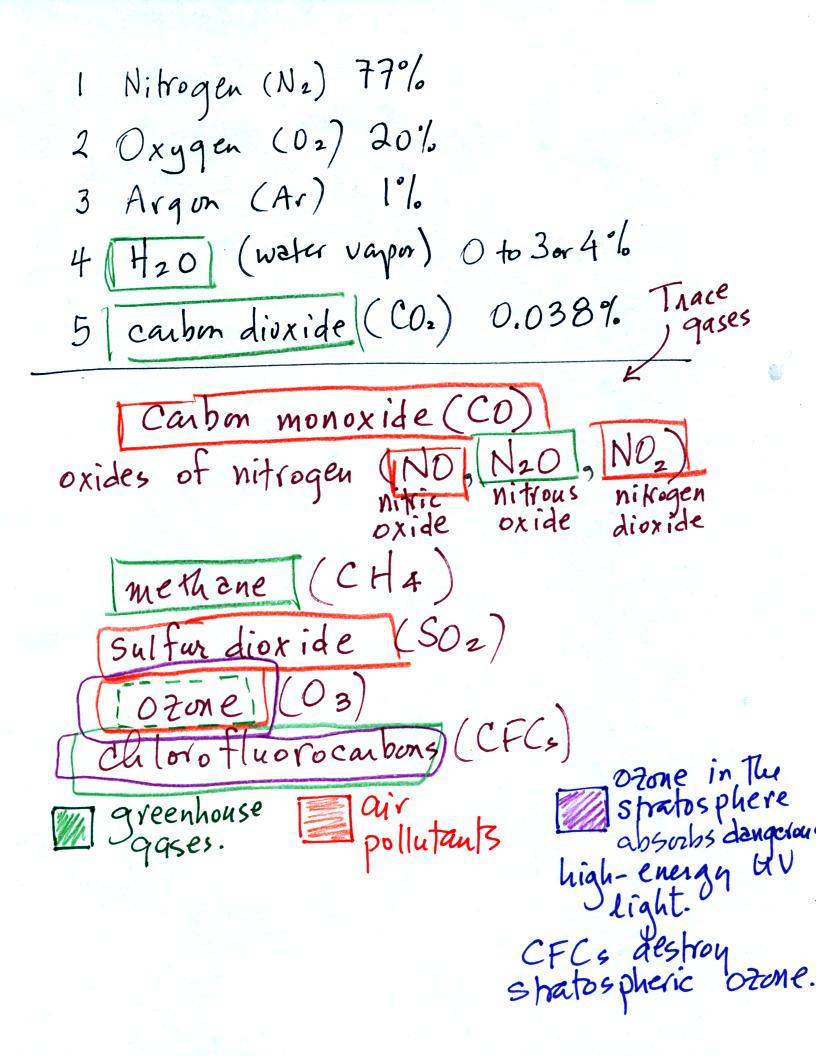 1 Nitrogen (N2) 77%
2 Oxygen (O2) 20%
3 Argon (Ar) 1%
4 H2O (water vapor) 0 to 3 or 4%
5 carbon dioxide (CO2) 0.038%
Trace
gases
Carbon monoxide (CO)
oxides of nitrogen (NO, N2O, NO2)
nitric oxide
nitrous oxide
nitrogen dioxide
methane (CH4)
sulfur dioxide (SO2)
ozone (O3)
chlorofluorocarbons (CFCs)
greenhouse
gases.
air
pollutants
ozone in the
stratosphere
absorbs dangerou
high-energy UV
light.
CFCs destroy
stratospheric ozone.